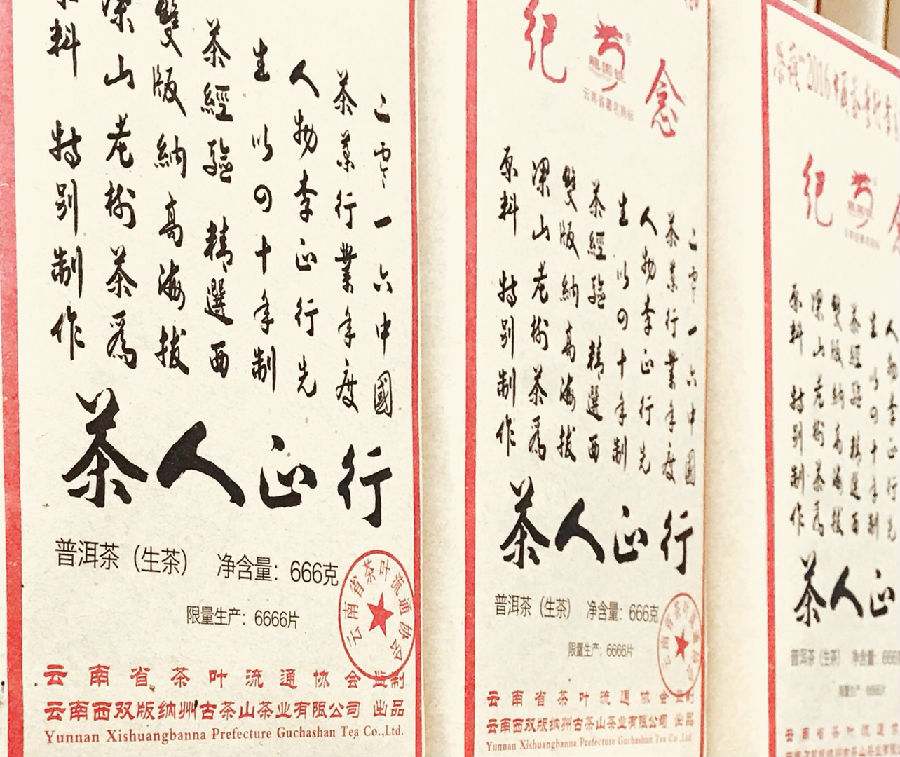 二零一六中國
茶葉行業年度
人物李正行先
生以四十年制
茶經驗 精選西
雙版納高海拔
深山老樹茶爲
料 特別制作
茶人正行
普洱茶（生茶） 净含量：666克
限量生产：6666片
云南省茶叶流通协会
云南省茶叶流通协会监制
云南西双版纳州古茶山茶业有限公司 出品
Yunnan Xishuangbanna Prefecture Guchashan Tea Co.,Ltd.
紀念
二零一六中國
茶葉行業年度
人物李正行先
生以四十年制
茶經驗 精選西
雙版納高海拔
深山老樹茶爲
原料 特別制作
茶人正行
普洱茶（生茶） 净含量：666克
限量生产：6666片
云南省茶叶流通协会监制
云南西双版纳州古茶山茶业有限公司 出品
Yunnan Xishuangbanna Prefecture Guchashan Tea Co.,Ltd.
2016中国茶
紀念
人物李正行
生以四十年制
茶經驗 精選西
雙版納高海拔
深山老樹茶爲
原料 特別制作
茶人正
普洱茶（生茶） 净含量：666